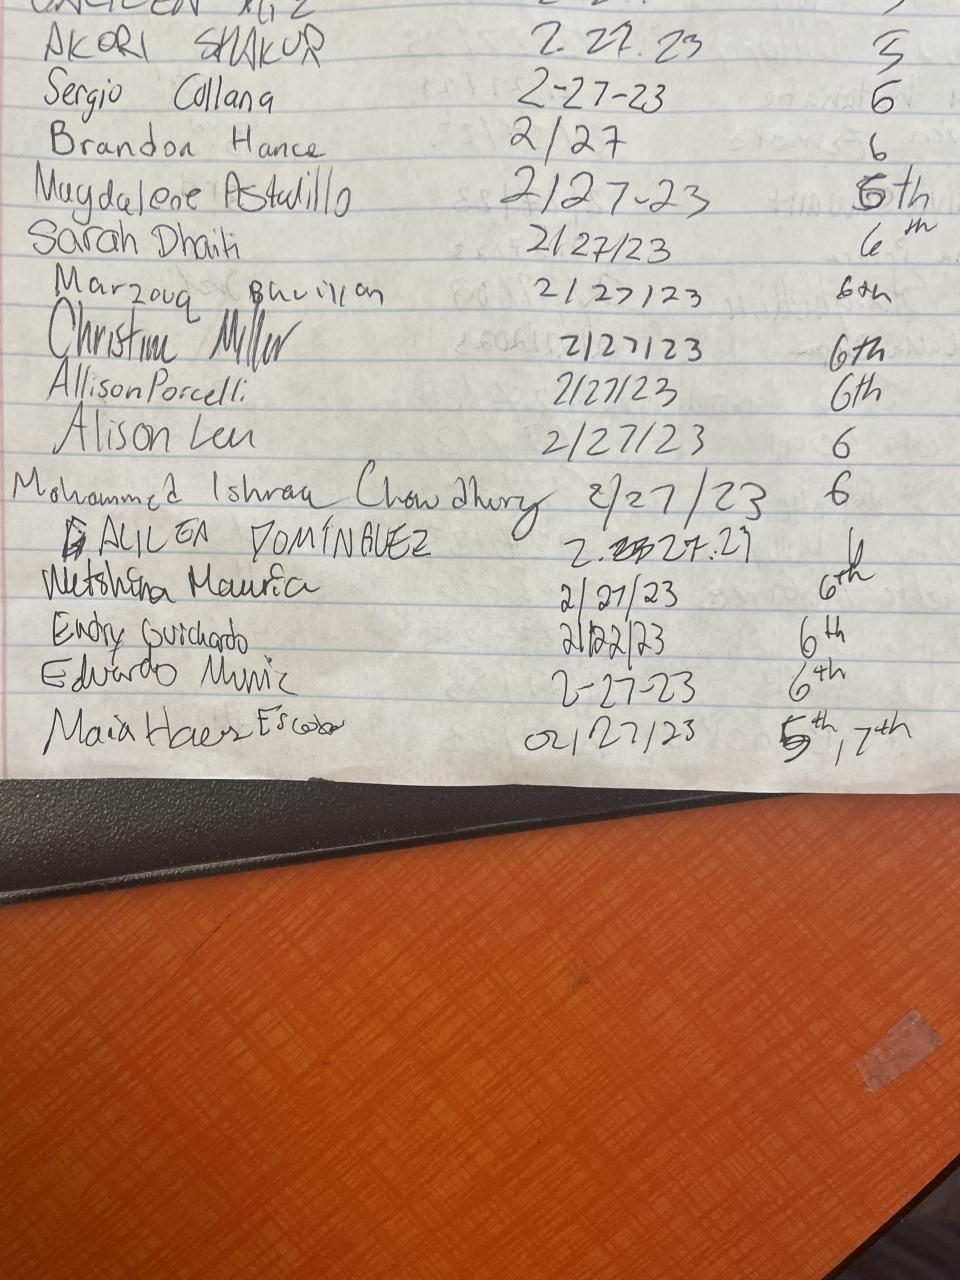 AKORI SHAKUR 2.27.23 5
Sergio Collana 2-27-23 6
Brandon Hance 2/27 6
Magdalene Astudillo 2/27-23 6th
Sarah Dhaiti 2/27/23 6th
Marzouq 2/27/23 6th
Christine Miller 2/27/23 6th
Allison Porcelli 2/27/23 6th
Alison Leu 2/27/23 6
Mohammed Ishraq Chowdhury 2/27/23 6
DOMÍNGUEZ 6
2/27/23 6th
Endry Guichardo 2/22/23 6th
Eduardo Muniz 2-27-23 6th
Maia Haes Escobar 02/27/23 5th, 7th